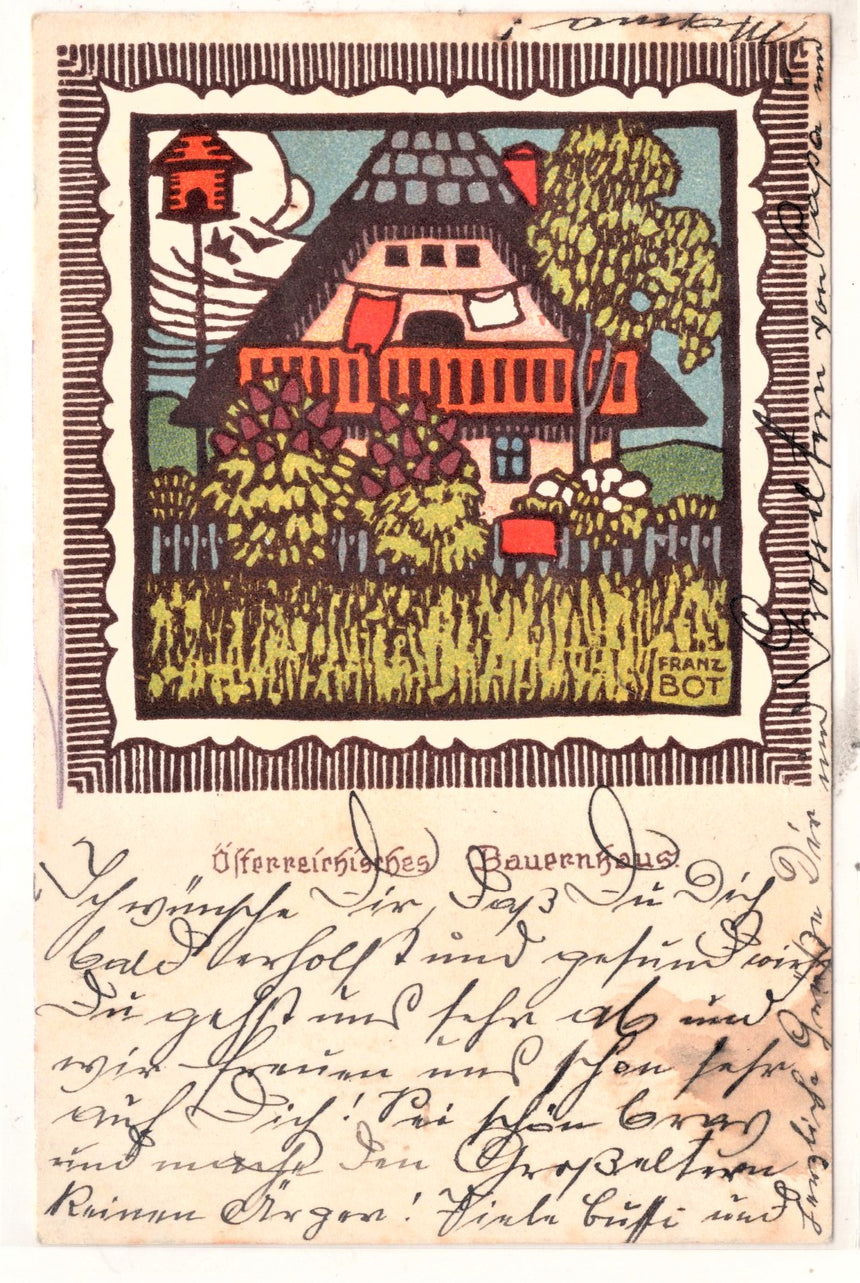 FRANZ
BOT
Österreichisches Bauernhaus.
Ich wünsche Dir, daß Du Dich
bald erholst und gesund wirst
Du gehst uns sehr ab und
wir freuen uns schon sehr
auf Dich! Sei schön brav
und mache den Großeltern
keinen Ärger! Viele Bussi und
herzliche Grüße Dir und
Großeltern von Papa und
Mama